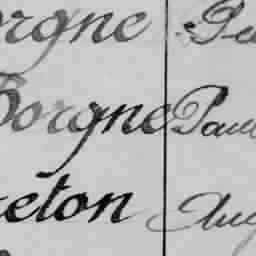 orgne
Borgne Paul
eton Aug